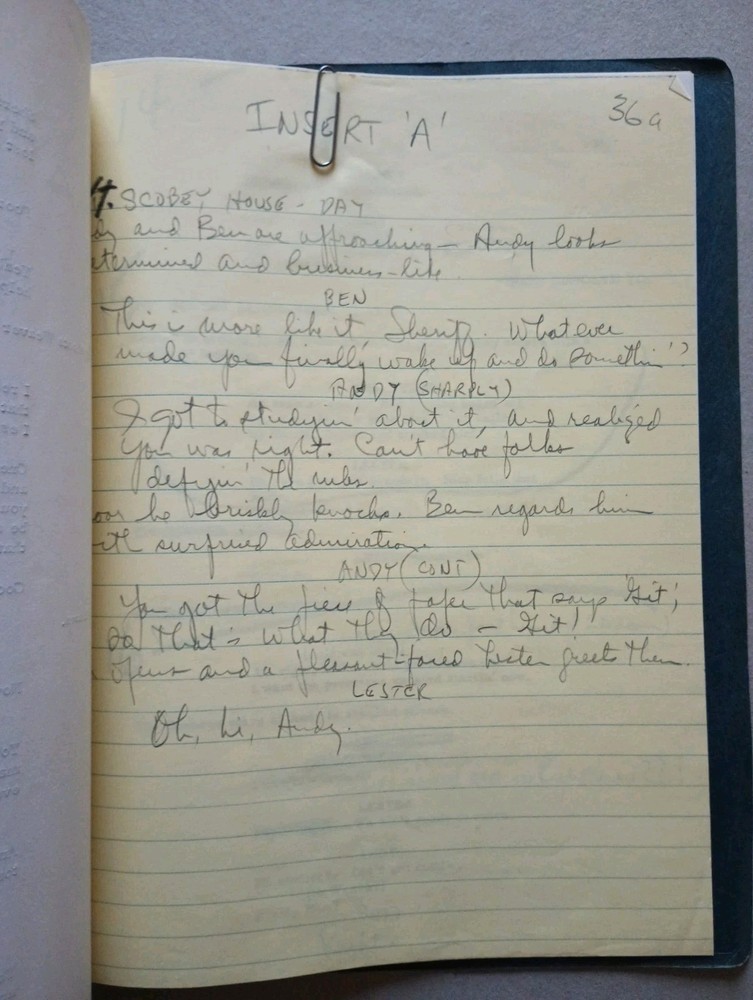 INSERT 'A'
36a
SCOBEY HOUSE - DAY
and Ben are approaching - Andy looks
etermined and business-like
BEN
This is more like it Sheriff. Whatever
made you finally wake up and do somethin'?
ANDY (SHARPLY)
I got to studyin' about it, and realized
you was right. Can't have folks
defyin' the rules.
he briskly knocks. Ben regards him
ith surprised admiration.
ANDY (CONT)
You got the piece of paper that says 'Git',
So that's what they do - Git!
opens and a pleasant-faced Lester greets them.
LESTER
Oh, hi, Andy.